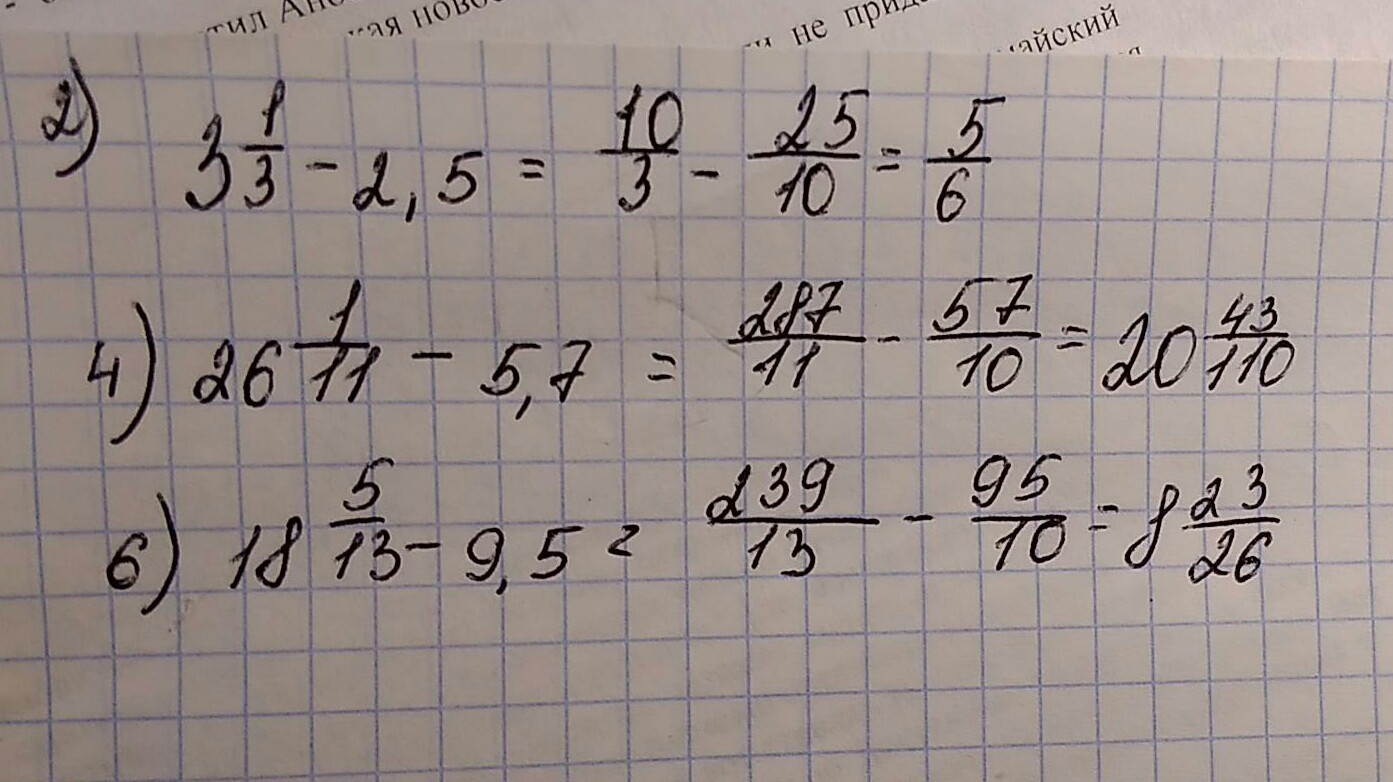 тил
кая ново
не прид
айский
2) 3 1/3 - 2,5 = 10/3 - 25/10 = 5/6
4) 26 1/11 - 5,7 = 287/11 - 57/10 = 20 43/110
6) 18 5/13 - 9,5 = 239/13 - 95/10 = 8 23/26